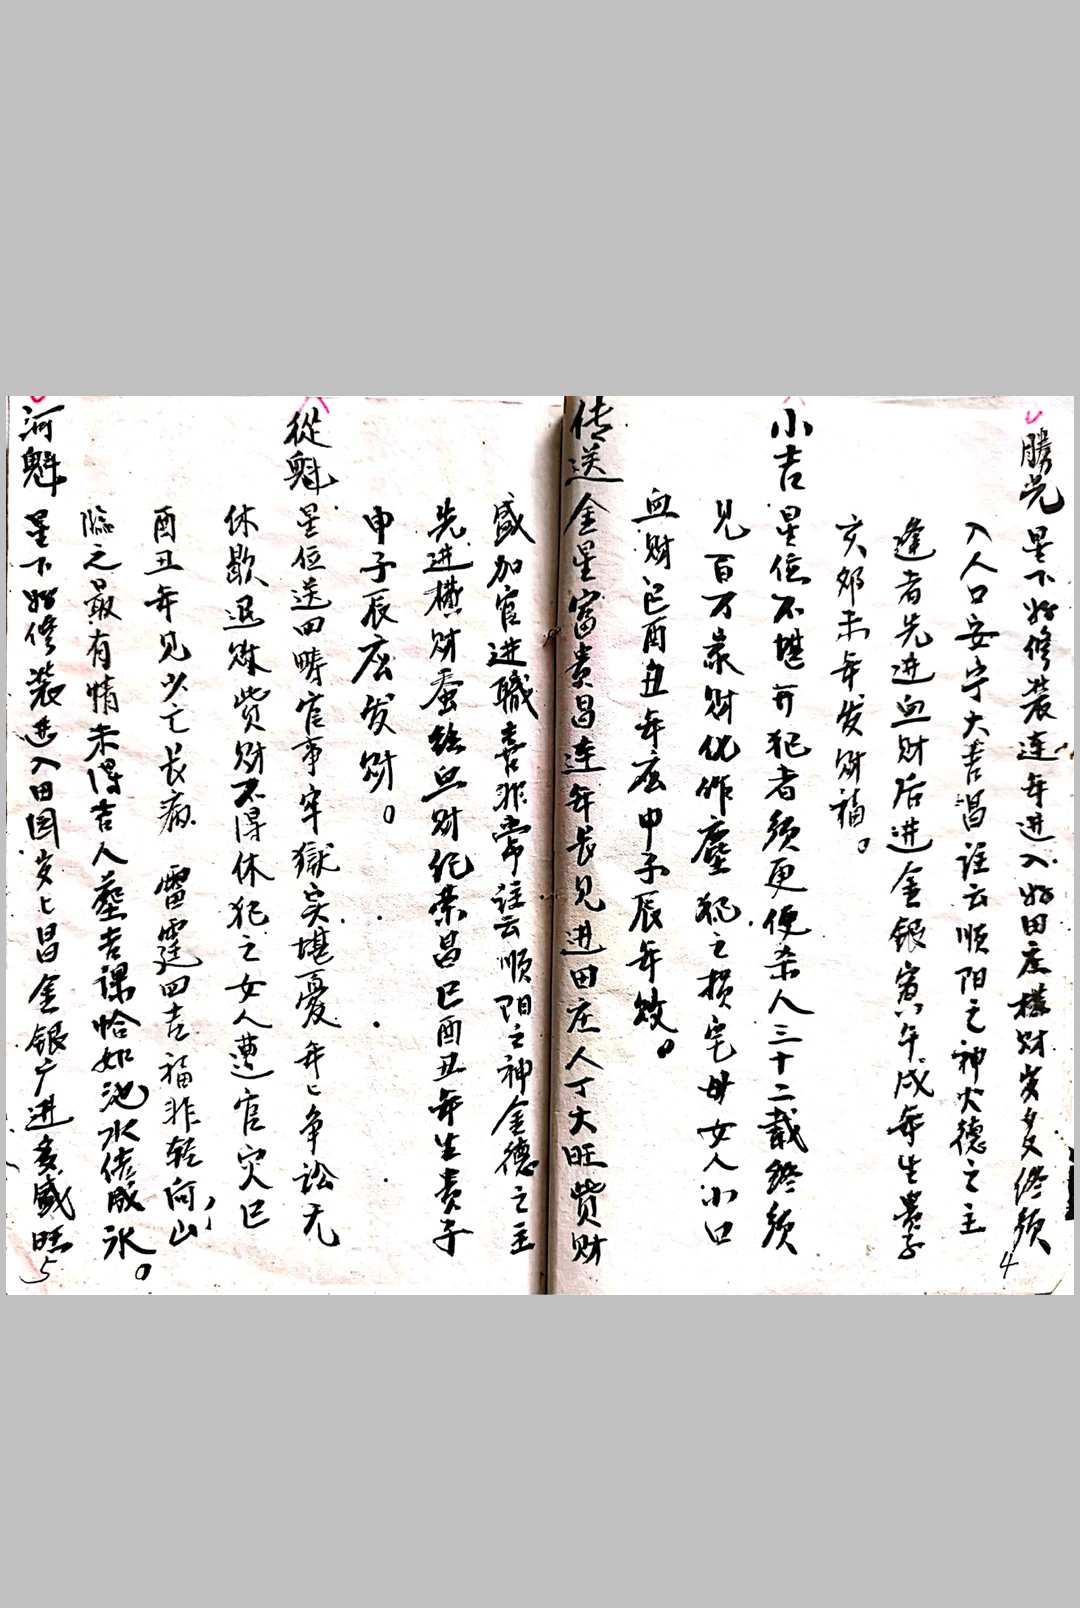 勝光 星下好修装连年进入好田庄横财岁多终须
入人口安宁大吉昌诠云顺阳之神火德之主
逢者先进血财后进金银寅午戌年生贵子
亥卯未年发财福。
小吉 星位不堪开犯者须更便杀人三十二载终须
见百万家财化作塵犯之损宅母女人小口
血财巳酉丑年应申子辰年败。
4
传送 金星富贵昌连年长见进田庄人丁大旺赀财
盛加官进職喜非常诠云顺阳之神金德之主
先进横财蚕丝血财纪荣昌巳酉丑年生贵子
申子辰应发财。
從魁 星位送田畴官事牢獄实堪憂年〻争讼无
休歇退败赀财不得休犯之女人遭官灾巳
酉丑年见少亡长病 雷霆四吉福非轻向山
臨之最有情未得吉人葬吉课恰如池水结成冰。
河魁 星下好修装进入田园岁〻昌金银广进多盛旺
5